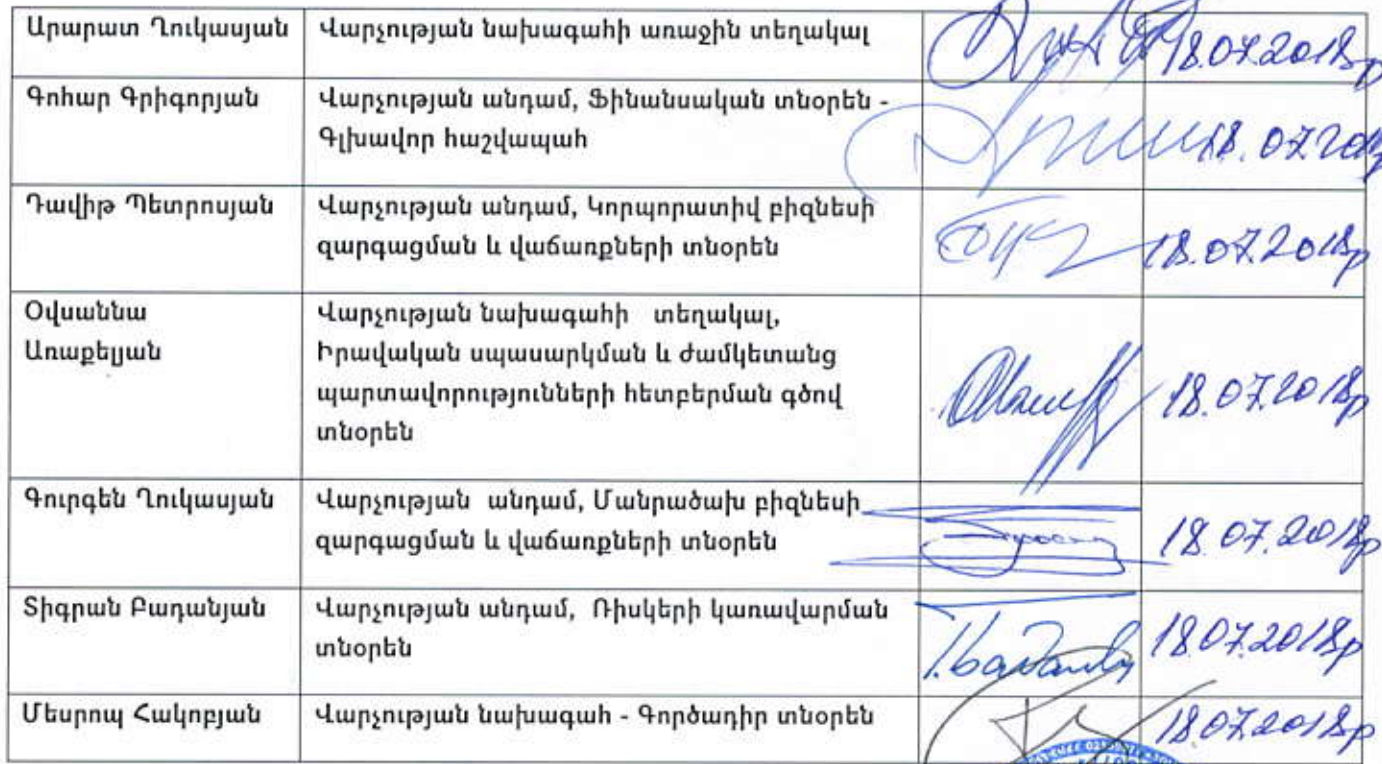 Արարատ Ղուկասյան Վարչության նախագահի առաջին տեղակալ 18.07.2018թ
Գոհար Գրիգորյան Վարչության անդամ, Ֆինանսական տնօրեն - 18.07.2018
Գլխավոր հաշվապահ
Դավիթ Պետրոսյան Վարչության անդամ, Կորպորատիվ բիզնեսի 18.07.2018թ
զարգացման և վաճառքների տնօրեն
Օվսաննա Վարչության նախագահի տեղակալ,
Առաքելյան Իրավական սպասարկման և ժամկետանց 18.07.2018թ
պարտավորությունների հետբերման գծով
տնօրեն
Գուրգեն Ղուկասյան Վարչության անդամ, Մանրածախ բիզնեսի 18.07.2018թ
զարգացման և վաճառքների տնօրեն
Տիգրան Բադանյան Վարչության անդամ, Ռիսկերի կառավարման 18.07.2018թ
տնօրեն
Մեսրոպ Հակոբյան Վարչության նախագահ - Գործադիր տնօրեն 18.07.2018թ